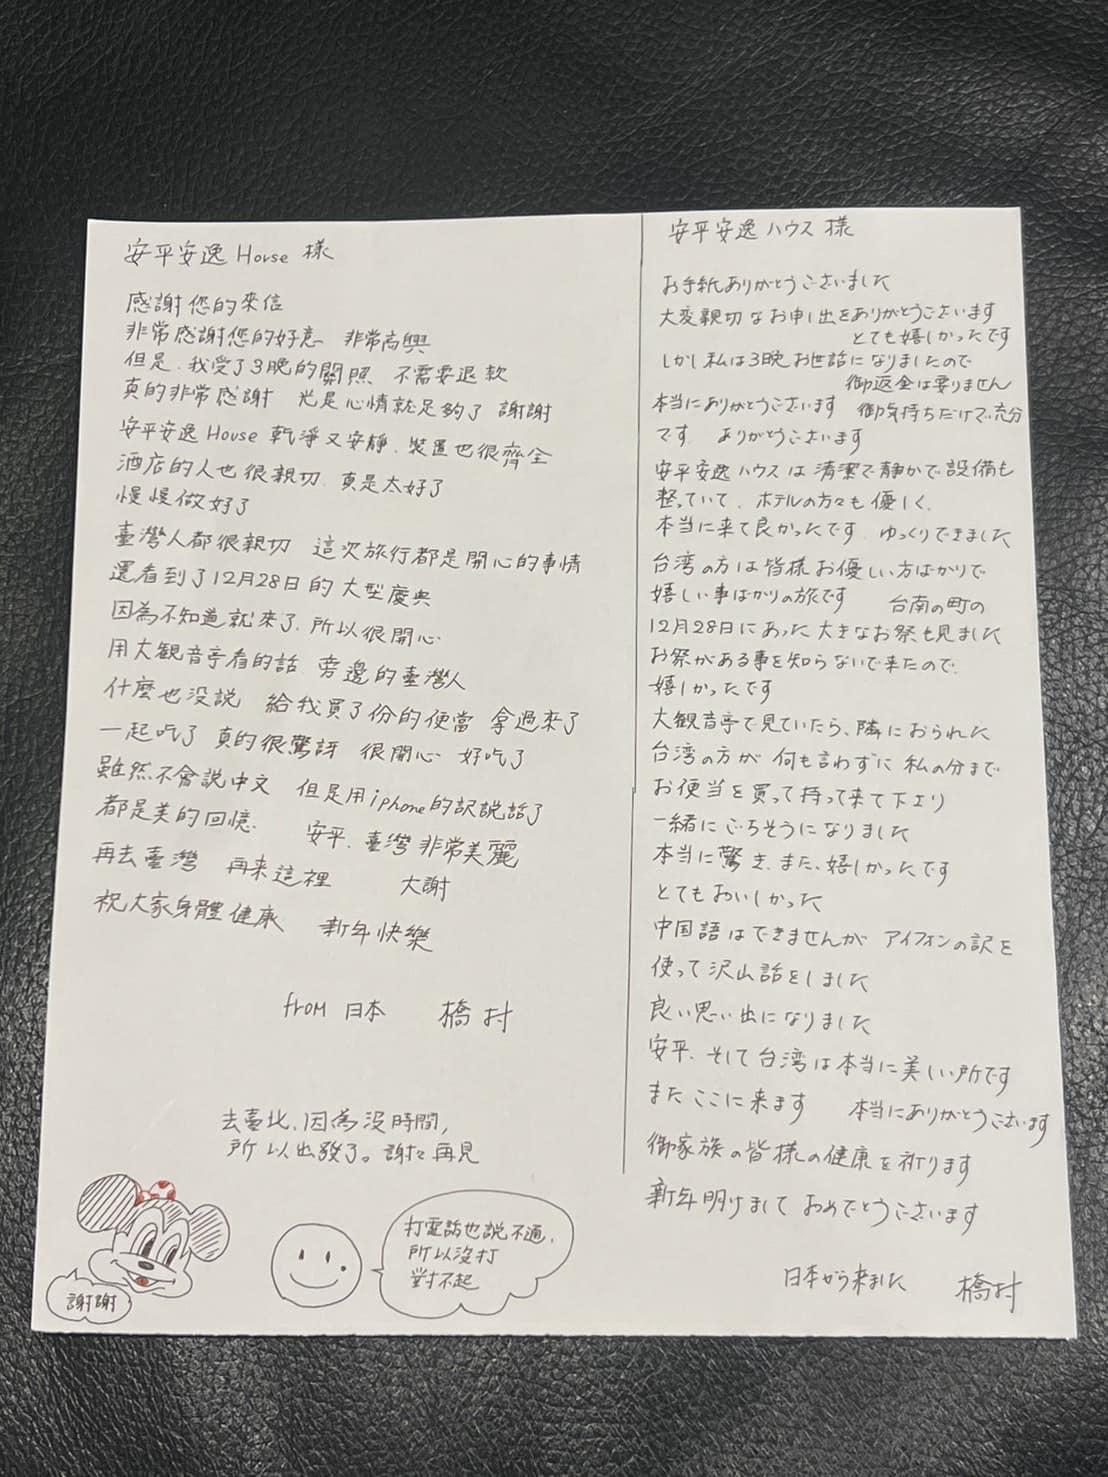 安平安逸 House 様
感謝您的來信
非常感謝您的好意　非常高興
但是、我受了3晚的關照　不需要退款
真的非常感謝　光是心情就足夠了　謝謝
安平安逸 House 乾淨又安靜、裝置也很齊全
酒店的人也很親切、真是太好了
慢慢做好了
臺灣人都很親切　這次旅行都是開心的事情
還看到了12月28日的大型慶典
因為不知道就來了、所以很開心
用大観音亭看的話　旁邊的臺灣人
什麼也没説　給我買了份的便當　拿過來了
一起吃了　真的很驚訝　很開心　好吃了
雖然不會說中文　但是用iphone的訳說話了
都是美的回憶、　安平、臺灣非常美麗
再去臺灣　再来這裡　大謝
祝大家身體健康　新年快樂
from 日本　橋村
去臺北、因為没時間,
所以出発了。謝々再見
謝謝
打電話也說不通,
所以没打
對不起
安平安逸ハウス様
お手紙ありがとうございました
大変親切なお申し出をありがとうございます
とても嬉しかったです
しかし私は3晩お世話になりましたので
御返金は要りません
本当にありがとうございます　御気持ちだけで充分
です、ありがとうございます
安平安逸ハウスは清潔で静かで設備も
整っていて、ホテルの方々も優しく、
本当に来て良かったです、ゆっくりできました
台湾の方は皆様お優しい方ばかりで
嬉しい事ばかりの旅です　台南の町の
12月28日にあった大きなお祭も見ました
お祭がある事を知らないで来たので、
嬉しかったです
大観音亭で見ていたら、隣におられた
台湾の方が何も言わずに私の分まで
お便当を買って持って来て下より
一緒にごちそうになりました
本当に驚き、また、嬉しかったです
とてもおいしかった
中国語はできませんが　アイフォンの訳を
使って沢山話をしました
良い思い出になりました
安平、そして台湾は本当に美しい所です
またここに来ます　本当にありがとうございます
御家族の皆様の健康を祈ります
新年明けまして　おめでとうございます
日本から来ました　橋村